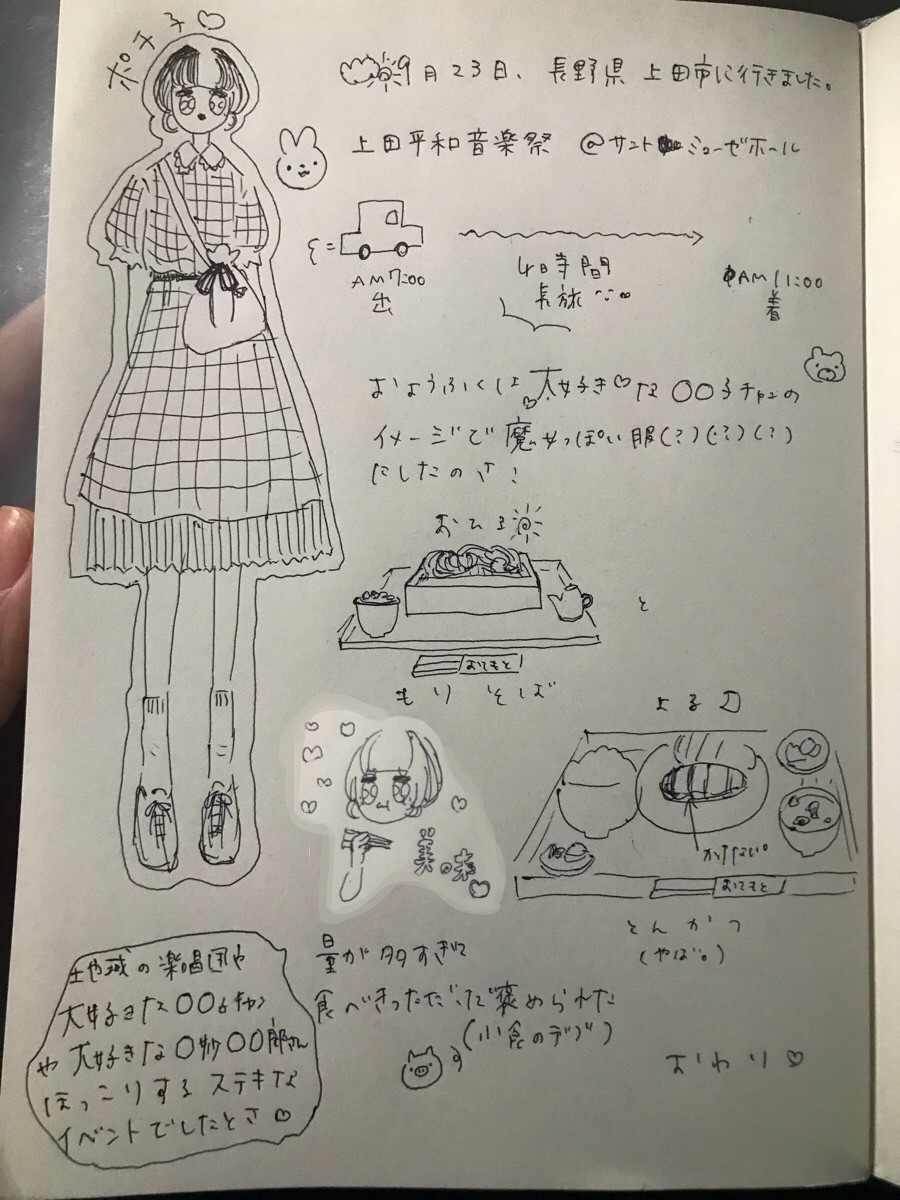 ポチ子♡
9月23日、長野県 上田市に行きました。
上田平和音楽祭 @サントミューゼホール
AM7:00
出
4時間
長旅
AM11:00
着
おようふくは大好き♡な〇〇子チャンの
イメージで魔女っぽい服(?)(?)(?)
にしたのさ!
おひる
と
おてもと
もりそば
よる
美味
かたい。
おてもと
とんかつ
(やば。)
量が多すぎて
食べきっただけで褒められた
(小食のデブ)
おわり♡
地域の楽唱団や
大好きな〇〇子チャン
や大好きな〇妙〇〇郎さん
ほっこりするステキな
イベントでしたとさ♡